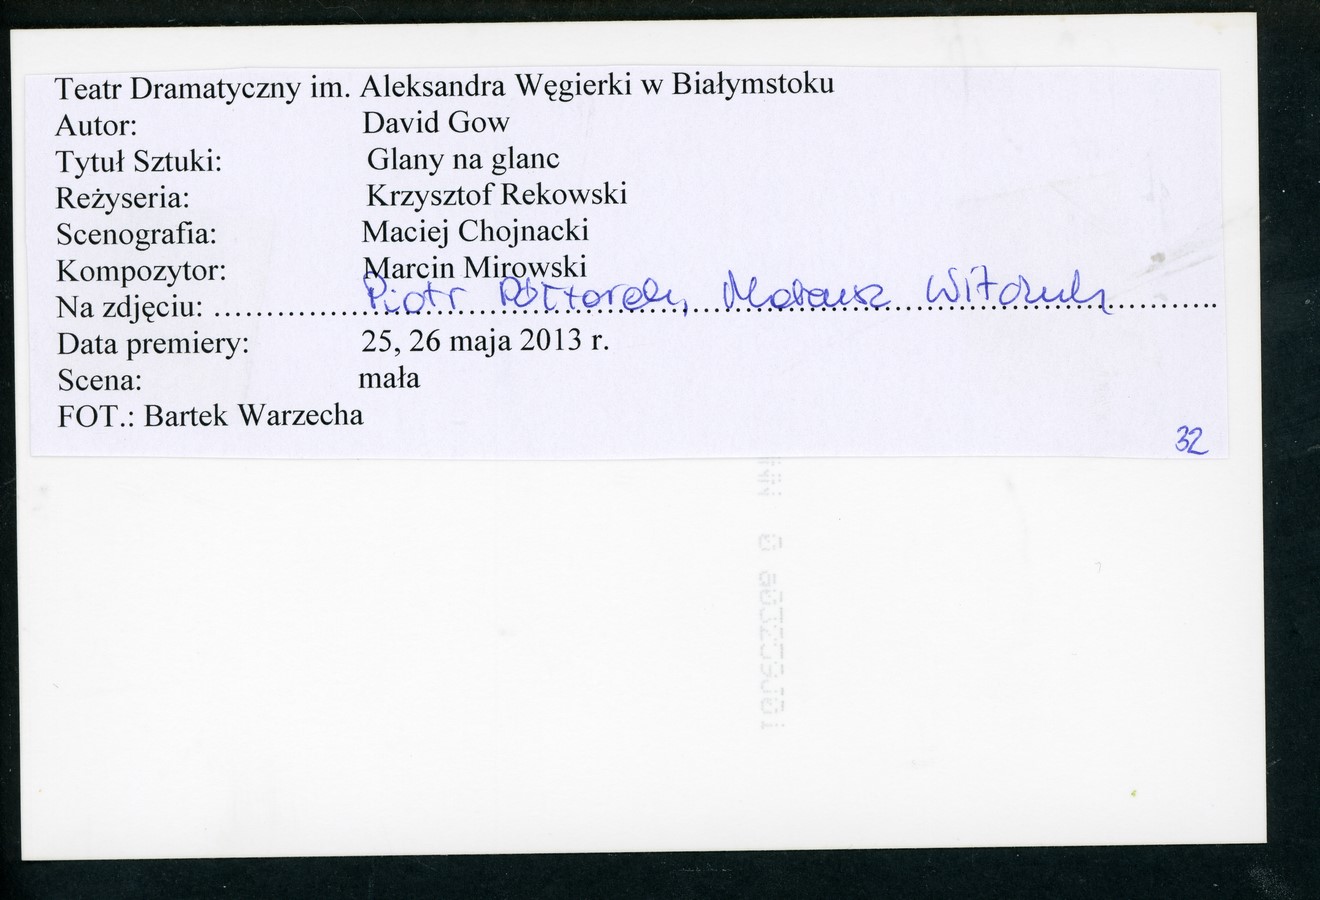 Teatr Dramatyczny im. Aleksandra Węgierki w Białymstoku
Autor: David Gow
Tytuł Sztuki: Glany na glanc
Reżyseria: Krzysztof Rekowski
Scenografia: Maciej Chojnacki
Kompozytor: Marcin Mirowski
Na zdjęciu: Piotr Półtorak, Mateusz Witczuk
Data premiery: 25, 26 maja 2013 r.
Scena: mała
FOT.: Bartek Warzecha
32